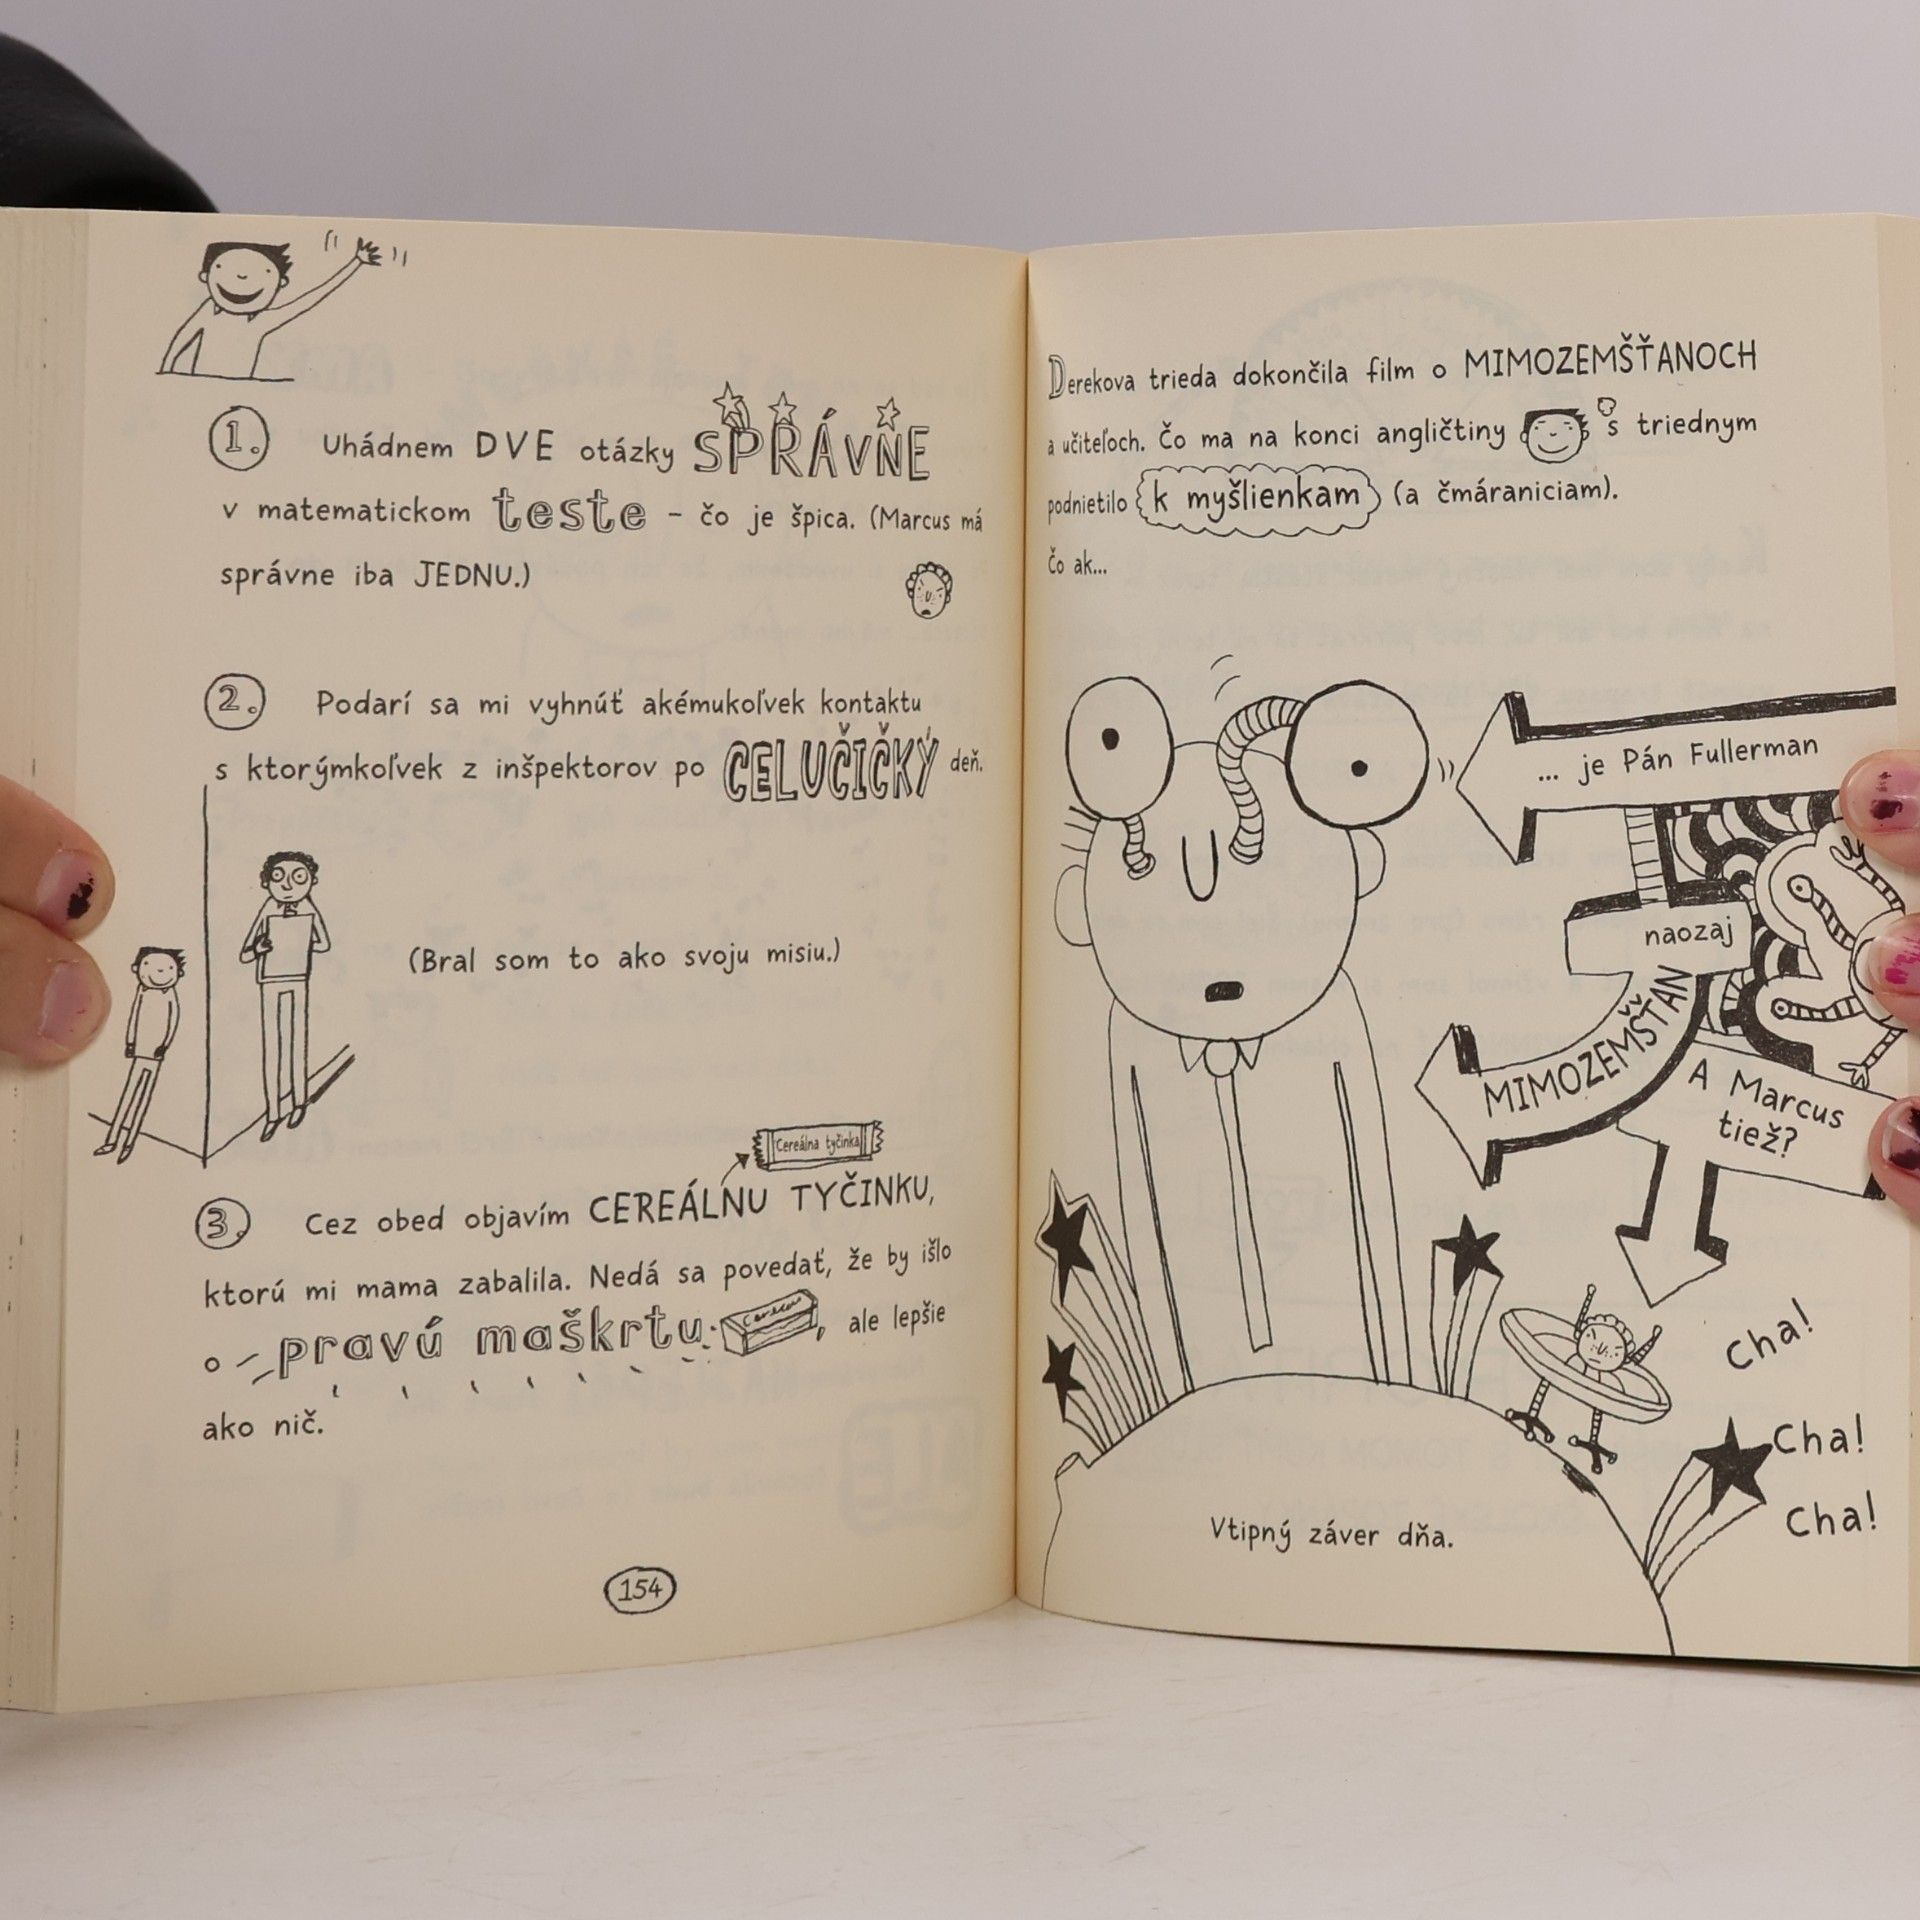 1. Uhádnem DVE otázky SPRÁVNE
v matematickom teste - čo je špica. (Marcus má
správne iba JEDNU.)
2. Podarí sa mi vyhnúť akémukoľvek kontaktu
s ktorýmkoľvek z inšpektorov po CELUČIČKÝ deň.
(Bral som to ako svoju misiu.)
Cereálna tyčinka
3. Cez obed objavím CEREÁLNU TYČINKU,
ktorú mi mama zabalila. Nedá sa povedať, že by išlo
o pravú maškrtu, ale lepšie
ako nič.
154
Derekova trieda dokončila film o MIMOZEMŠŤANOCH
a učiteľoch. Čo ma na konci angličtiny s triednym
podnietilo k myšlienkam (a čmáraniciam).
Čo ak...
... je Pán Fullerman
naozaj
MIMOZEMŠŤAN
A Marcus
tiež?
Cha!
Cha!
Cha!
Vtipný záver dňa.